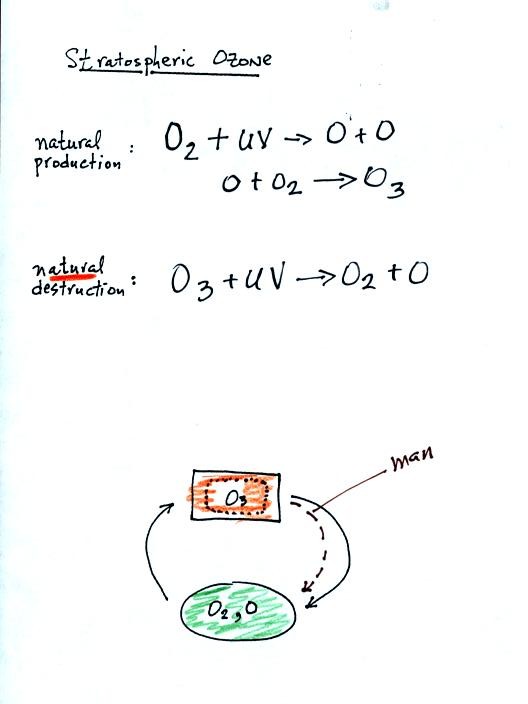 Stratospheric Ozone
natural production : O2 + UV → O + O
O + O2 → O3
natural destruction : O3 + UV → O2 + O
man
O3
O2, O